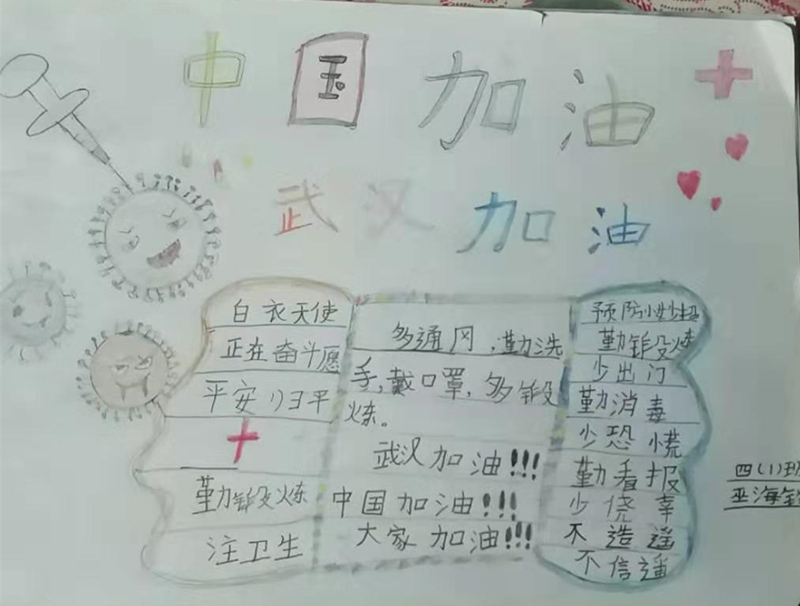 中国加油
武汉加油
白衣天使
正在奋斗愿
平安归平
勤锻炼
注卫生
多通风,勤洗
手,戴口罩,多锻
炼。
武汉加油!!!
中国加油!!!
大家加油!!!
预防小妙招
勤锻炼
少出门
勤消毒
少恐慌
勤看报
少侥幸
不造遥
不信遥
四(1)班
巫海